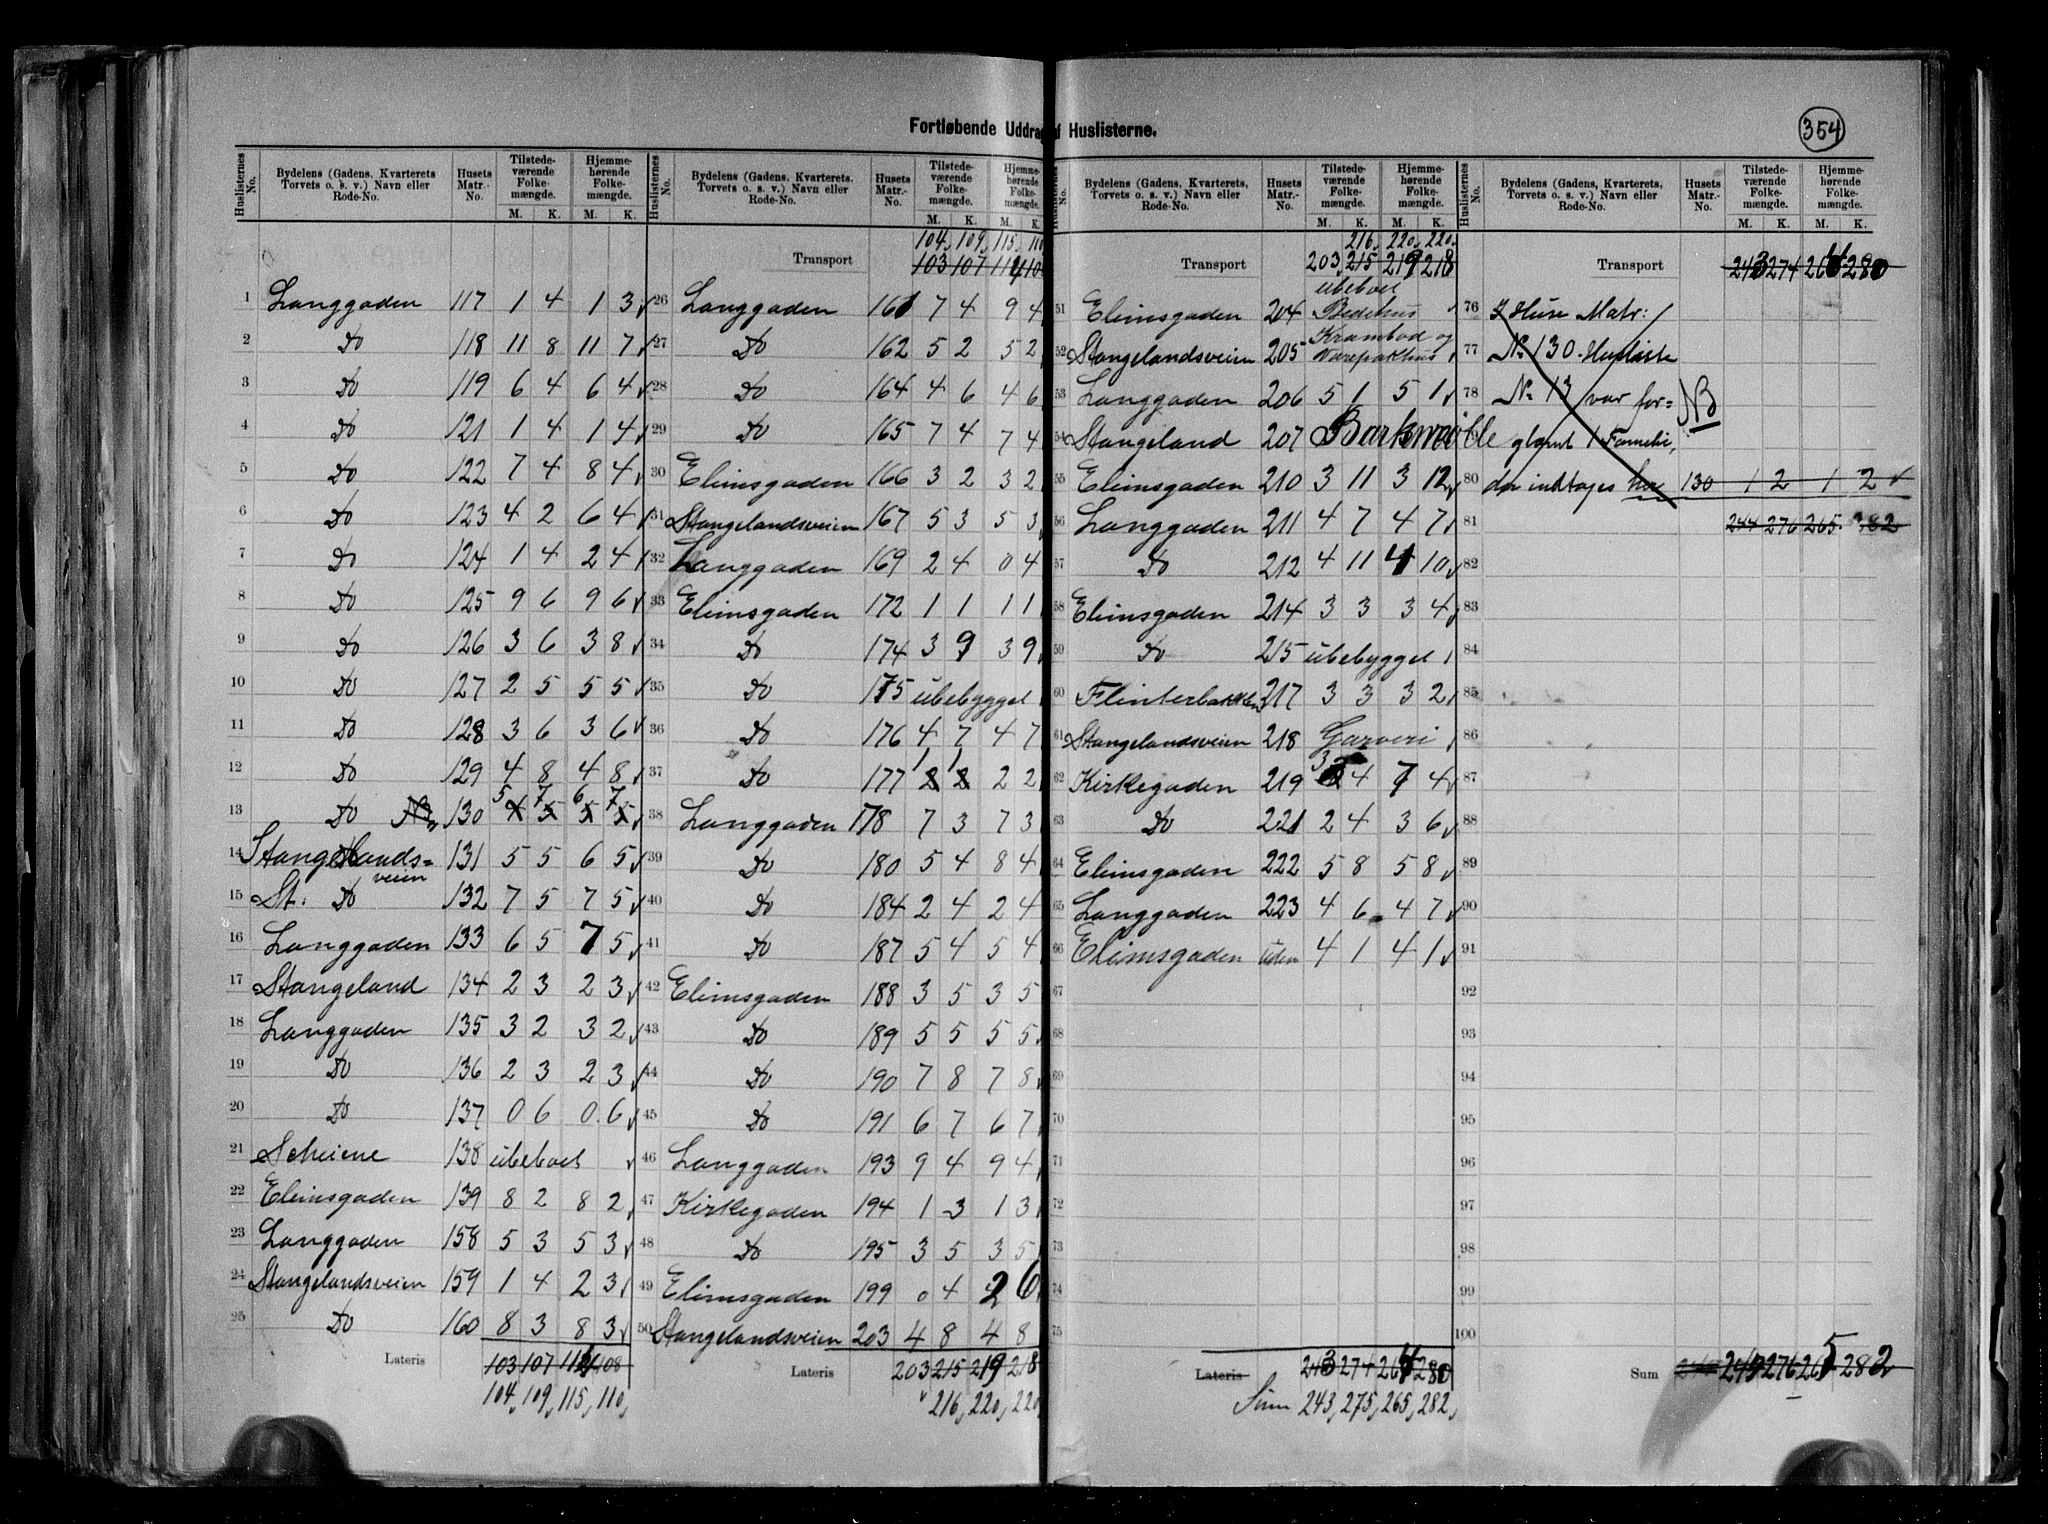 Fortløbende Uddrag af Huslisterne.
354
Huslisternes No. | Bydelens (Gadens, Kvarterets, Torvets o. s. v.) Navn eller Rode-No. | Husets Matr.-No. | Tilstedeværende Folkemængde. M. K. | Hjemmehørende Folkemængde. M. K.
1 Langgaden 117 1 4 1 3
2 Do 118 11 8 11 7
3 Do 119 6 4 6 4
4 Do 121 1 4 1 4
5 Do 122 7 4 8 4
6 Do 123 4 2 6 4
7 Do 124 1 4 2 4
8 Do 125 9 6 9 6
9 Do 126 3 6 3 8
10 Do 127 2 5 5 5
11 Do 128 3 6 3 6
12 Do 129 4 8 4 8
13 Do NB 130 5 7 6 7
14 Stangelands=veien 131 5 5 6 5
15 St. Do 132 7 5 7 5
16 Langgaden 133 6 5 7 5
17 Stangeland 134 2 3 2 3
18 Langgaden 135 3 2 3 2
19 Do 136 2 3 2 3
20 Do 137 0 6 0 6
21 Scheiene 138 ubeboet
22 Elimsgaden 139 8 2 8 2
23 Langgaden 158 5 3 5 3
24 Stangelandsveien 159 1 4 2 3
25 Do 160 8 3 8 3
Lateris 103 107 114 108
104, 109, 115, 110,
Huslisternes No. | Bydelens (Gadens, Kvarterets, Torvets o. s. v.) Navn eller Rode-No. | Husets Matr.-No. | Tilstedeværende Folkemængde. M. K. | Hjemmehørende Folkemængde. M. K.
104, 109, 115, 110
Transport 103 107 114 10
26 Langgaden 161 7 4 9 4
27 Do 162 5 2 5 2
28 Do 164 4 6 4 6
29 Do 165 7 4 7 4
30 Elimsgaden 166 3 2 3 2
31 Stangelandsveien 167 5 3 5 3
32 Langgaden 169 2 4 0 4
33 Elimsgaden 172 1 1 1 1
34 Do 174 3 9 3 9
35 Do 175 ubebygget
36 Do 176 4 7 4 7
37 Do 177 1 1 2 2
38 Langgaden 178 7 3 7 3
39 Do 180 5 4 8 4
40 Do 184 2 4 2 4
41 Do 187 5 4 5 4
42 Elimsgaden 188 3 5 3 5
43 Do 189 5 5 5 5
44 Do 190 7 8 7 8
45 Do 191 6 7 6 7
46 Langgaden 193 9 4 9 4
47 Kirkegaden 194 1 3 1 3
48 Do 195 3 5 3 5
49 Elimsgaden 199 0 4 2 6
50 Stangelandsveien 203 4 8 4 8
Lateris 203 215 219 218
216, 220, 220,
Huslisternes No. | Bydelens (Gadens, Kvarterets, Torvets o. s. v.) Navn eller Rode-No. | Husets Matr.-No. | Tilstedeværende Folkemængde. M. K. | Hjemmehørende Folkemængde. M. K.
216, 220, 220,
Transport 203, 215 219 218
51 Elimsgaden 204 ubeboet Bedehus
52 Stangelandsveien 205 Krambod og Varepakhus
53 Langgaden 206 5 1 5 1
54 Stangeland 207 Barkemølle
55 Elimsgaden 210 3 11 3 12
56 Langgaden 211 4 7 4 7
57 Do 212 4 11 4 10
58 Elimsgaden 214 3 3 3 4
59 Do 215 ubebygget
60 Flinterbakken 217 3 3 3 2
61 Stangelandsveien 218 Garveri
62 Kirkegaden 219 3 4 7 4
63 Do 221 2 4 3 6
64 Elimsgaden 222 5 8 5 8
65 Langgaden 223 4 6 4 7
66 Elimsgaden uden 4 1 4 1
67
68
69
70
71
72
73
74
75
Lateris 243 274 264 280
Sum 243, 275, 265, 282,
Huslisternes No. | Bydelens (Gadens, Kvarterets, Torvets o. s. v.) Navn eller Rode-No. | Husets Matr.-No. | Tilstedeværende Folkemængde. M. K. | Hjemmehørende Folkemængde. M. K.
Transport 243 274 264 280
76 I Huse Matr:
77 No 130. Husliste
78 No 13 var for= NB
79 glemt 1 Familie,
80 der indtages her 130 1 2 1 2
81 244 276 265 282
82
83
84
85
86
87
88
89
90
91
92
93
94
95
96
97
98
99
100
Sum 276 265 282